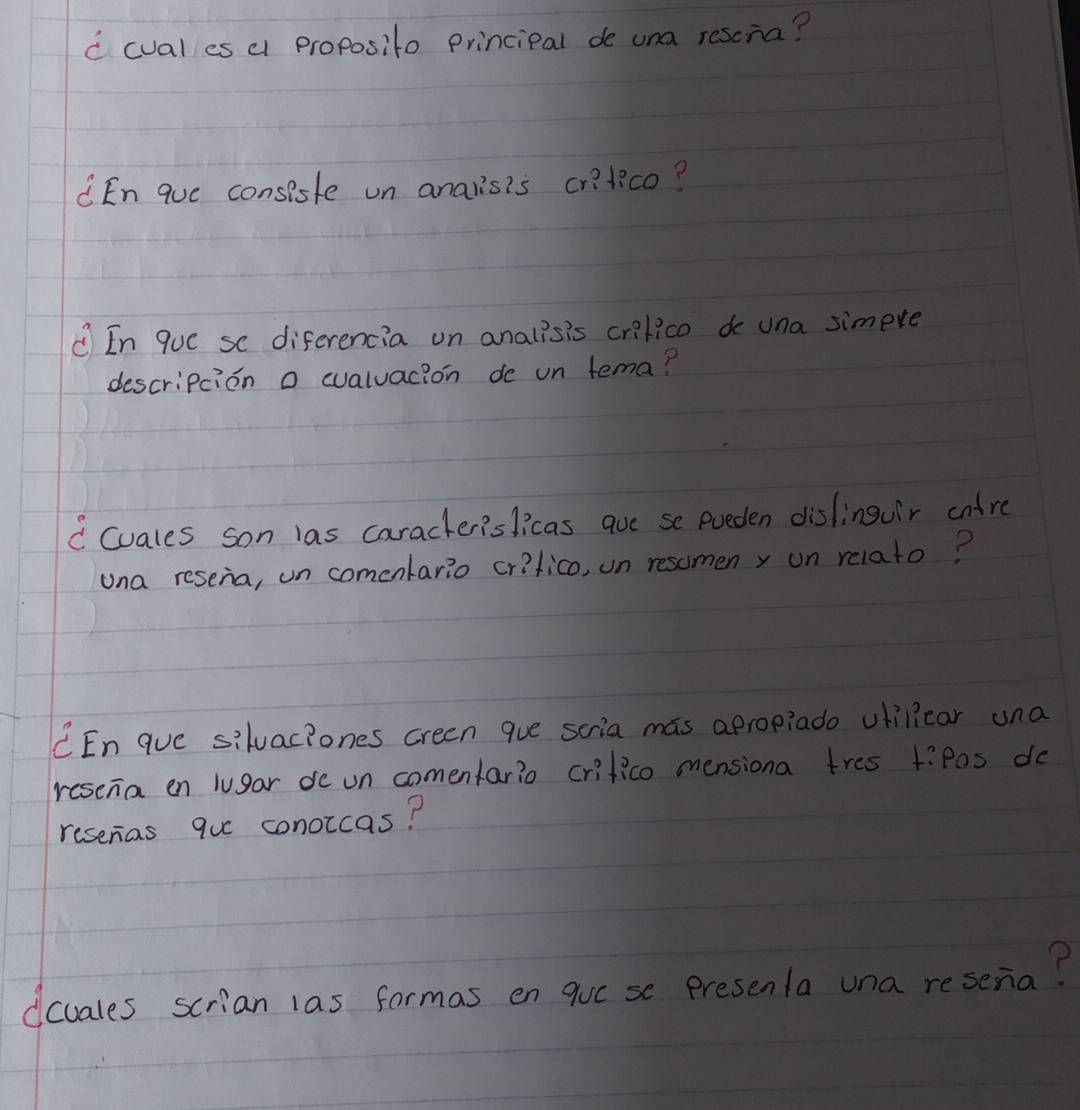 ¿cual es el proposito principal de una reseña?
¿En que consiste un analisis critico?
¿En que se diferencia un analisis critico de una simple
descripción o evaluación de un tema?
¿Cuales son las caracteristicas que se pueden distinguir entre
una reseña, un comentario critico, un resumen y un relato?
¿En que situaciones creen que seria más apropiado utilizar una
reseña en lugar de un comentario critico mensiona tres tipos de
reseñas que conozcas?
¿cuales serian las formas en que se presenta una reseña?